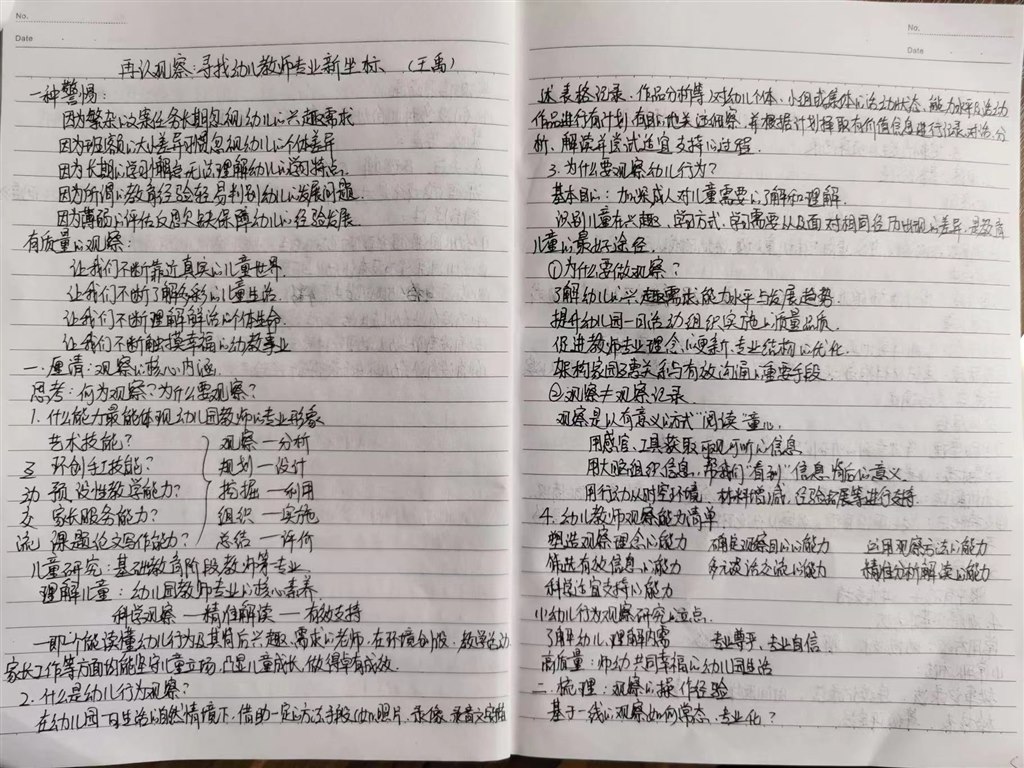 No.
Date
再认观察:寻找幼儿教师专业新坐标 (王禹)
一种警惕:
因为繁杂的文案任务长期忽视幼儿的兴趣需求
因为班额的大小差异习惯忽视幼儿的个体差异
因为长期的学习懈怠无法理解幼儿的学习特点.
因为所谓的教育经验轻易判别幼儿的发展问题.
因为薄弱的评估反思欠缺保障幼儿的经验发展.
有质量的观察:
让我们不断靠近真实的儿童世界.
让我们不断了解多彩的儿童生活
让我们不断理解鲜活的个体生命.
让我们不断触摸幸福的幼教事业
一.厘清:观察的核心内涵.
思考:何为观察?为什么要观察?
1.什么能力最能体现幼儿园教师的专业形象
艺术技能? 观察—分析
互 环创手工技能? 规划—设计
动 预设性教学能力? 挖掘—利用
交 家长服务能力? 组织—实施
流 课题论文写作能力? 总结—评价
儿童研究:基础教育阶段教师第一专业
理解儿童:幼儿园教师专业的核心素养.
科学观察—精准解读—有效支持
一即个能读懂幼儿行为及其背后兴趣、需求的老师,在环境创设、教学活动
家长工作等方面均能坚守儿童立场,凸显儿童成长,做得卓有成效.
2.什么是幼儿行为观察?
在幼儿园一日生活的自然情境下,借助一定的方法手段(如照片,录像,录音文字描
No.
Date
述,表格记录、作品分析等)对幼儿个体,小组或集体的活动状态,能力水平及活动
作品进行有计划,有目的地关注细察,并根据计划择取有价值信息进行记录对话,分
析、解读并尝试适宜支持的过程.
3.为什么要观察幼儿行为?
基本目的:加深成人对儿童需要的了解和理解.
识别儿童在兴趣、学习方式,学习需要以及面对相同经历出现的差异,是教育
儿童的最好途径.
①为什么要做观察?
了解幼儿的兴趣需求,能力水平与发展趋势.
提升幼儿园一日活动组织实施的质量品质.
促进教师专业理念的更新,专业结构的优化.
架构家园了要关系与有效沟通的重要手段.
②观察≠观察记录.
观察是以有意义的方式"阅读"童心.
用感官、工具获取可观可听的信息
用大脑组织信息,帮我们"看到"信息背后的意义.
用行动从时空环境、材料增减、经验拓展等进行支持.
4.幼儿教师观察能力清单
塑造观察理念的能力 确定观察目的的能力 运用观察方法的能力
筛选有效信息的能力 多元谈话交流的能力 精准分析解读的能力
科学适宜支持的能力
小幼儿行为观察研究的立点.
了解幼儿,理解内需 专业尊严,专业自信
高质量:师幼共同幸福的幼儿园生活
二.梳理:观察的操作经验
基于一线的观察如何常态、专业化?